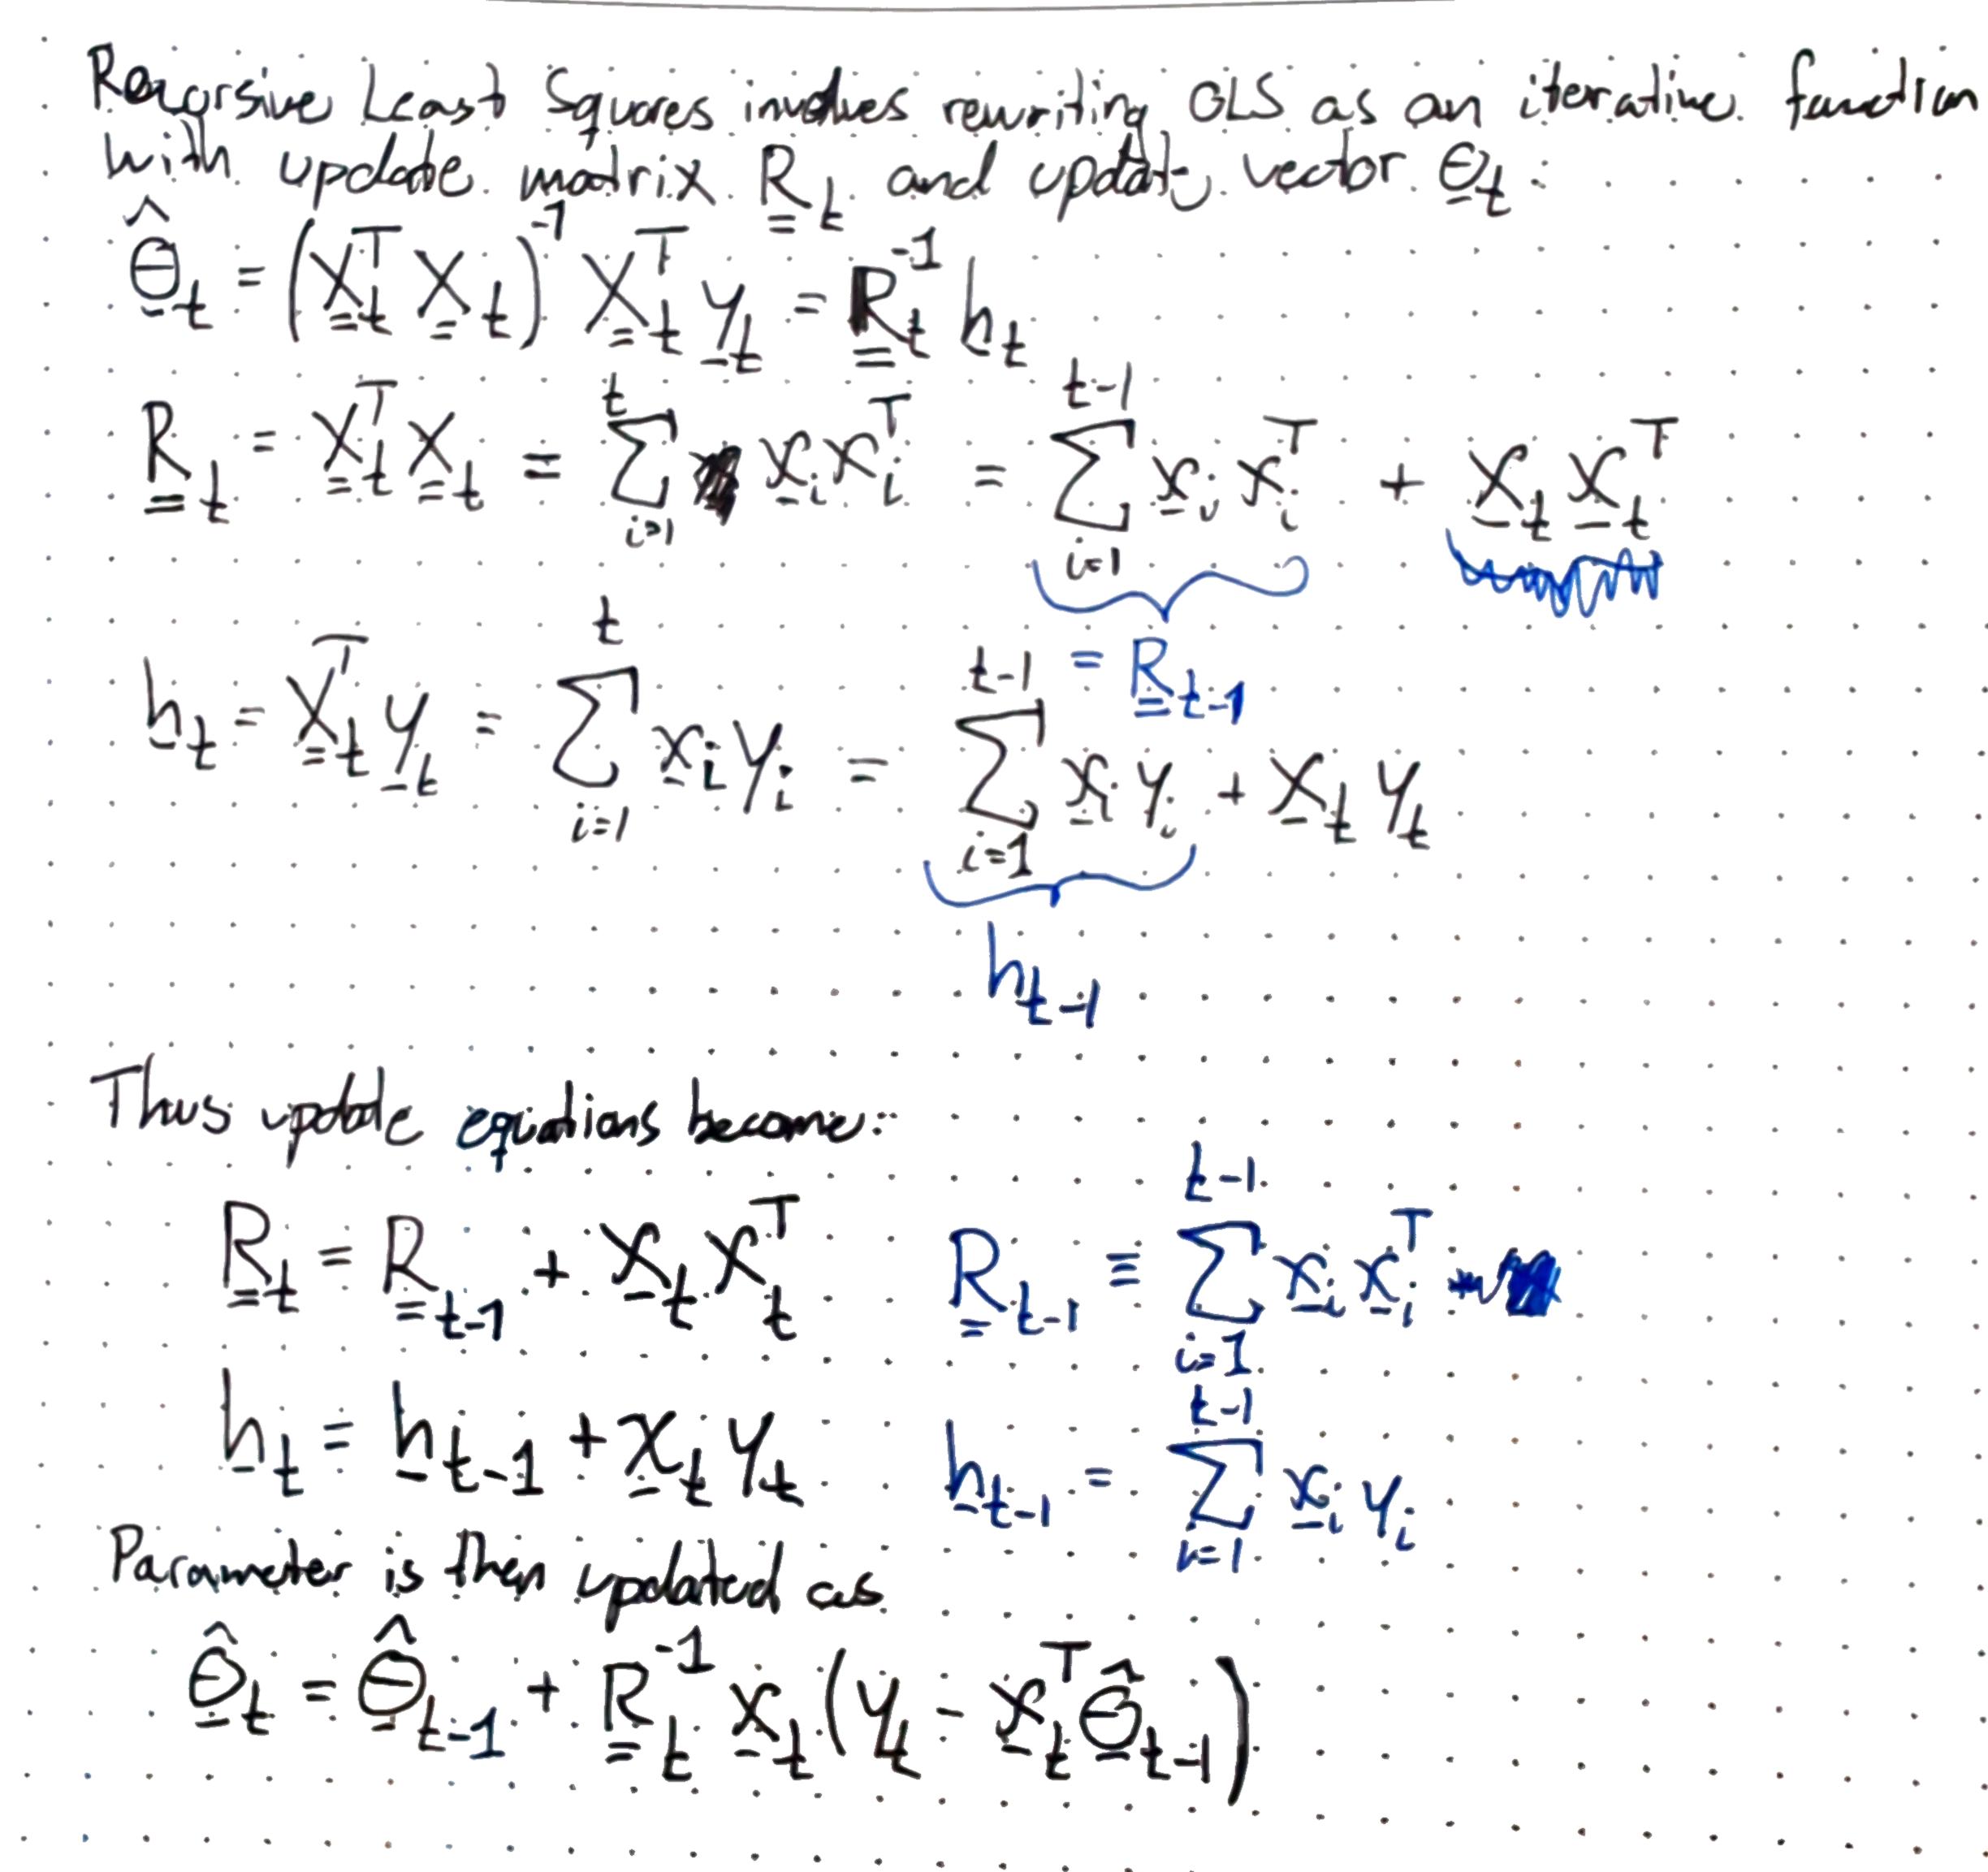 Recursive Least Squares involves rewriting OLS as an iterative function
with update matrix R̳_t and update vector θ̲_t :
θ̲̂_t = (X̳_t^T X̳_t)^-1 X̳_t^T y̲_t = R̳_t^-1 h̲_t
R̳_t = X̳_t^T X̳_t = ∑_{i=1}^{t} x̲_i x_i^T = ∑_{i=1}^{t-1} x̲_i x_i^T + x̲_t x̲_t^T
= R̳_{t-1}
h̲_t = X̳_t^T y̲_t = ∑_{i=1}^{t} x̲_i y_i = ∑_{i=1}^{t-1} x̲_i y_i + x̲_t y_t
h_{t-1}
Thus update equations become:
R̳_t = R̳_{t-1} + x̲_t x_t^T R̳_{t-1} ≡ ∑_{i=1}^{t-1} x̲_i x̲_i^T
h̲_t = h̲_{t-1} + x̲_t y_t h̲_{t-1} = ∑_{i=1}^{t-1} x̲_i y_i
Parameter is then updated as
θ̲̂_t = θ̲̂_{t-1} + R̳_t^-1 x̲_t (y_t - x̲_t^T θ̲̂_{t-1})